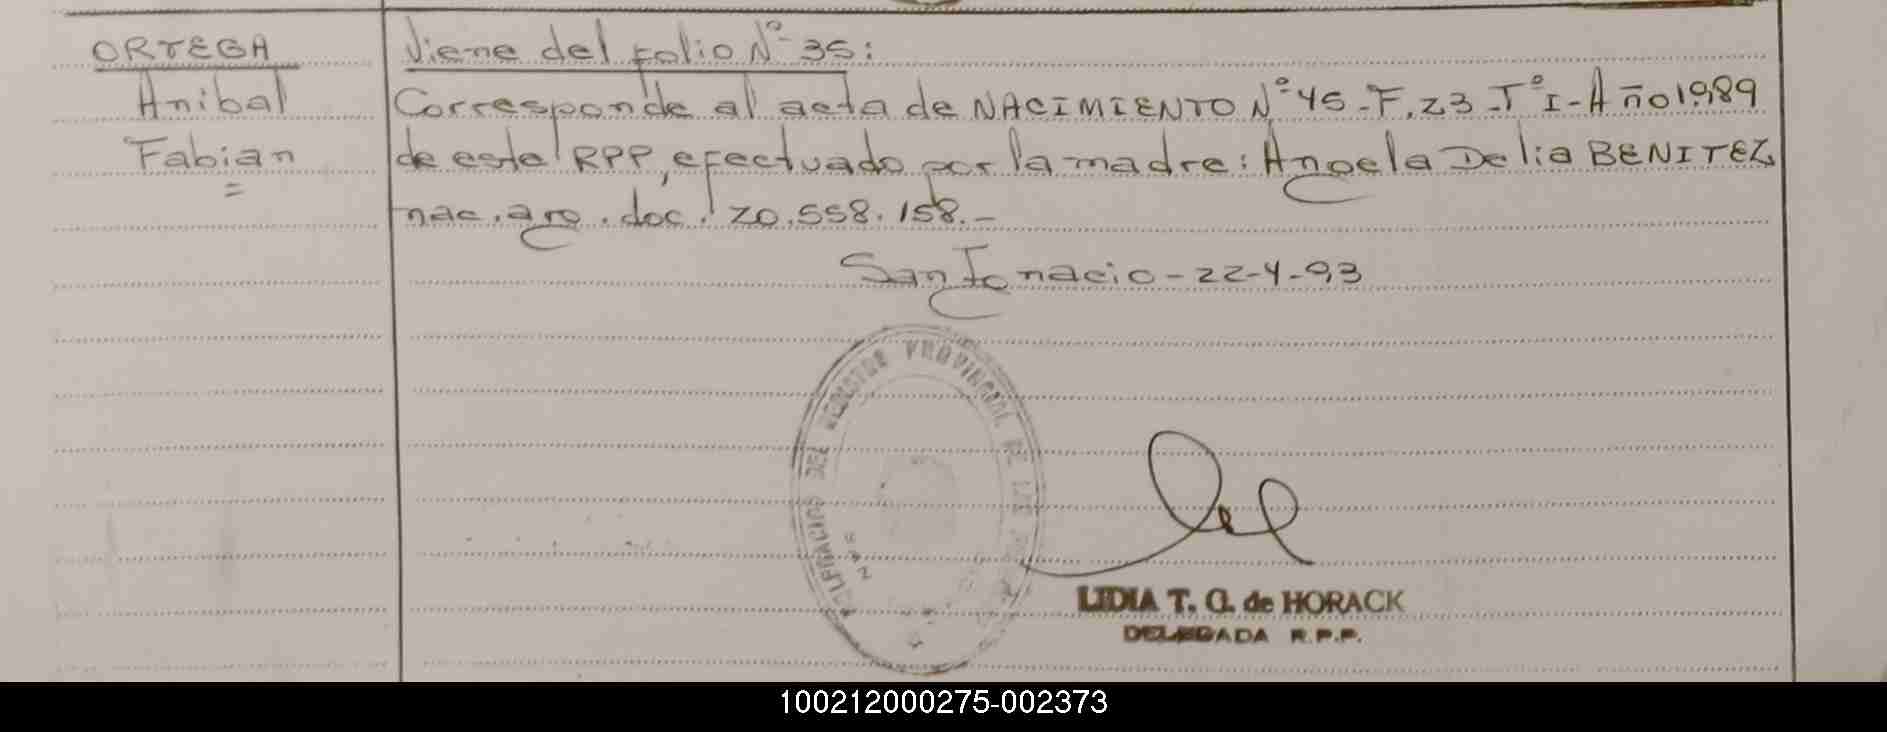 ORTEGA
Anibal
Fabian
=
Viene del folio Nº 35:
Corresponde al acta de NACIMIENTO Nº 45-F.23-Tº I-Año 1989
de este RPP, efectuado por la madre: Angela Delia BENITEZ,
nac. arg. doc. 20.558.158.-
San Ignacio-22-4-93
DEL REGISTRO PROVINCIAL DE LAS
LIDIA T. G. de HORACK
DELEGADA R.P.P.
100212000275-002373